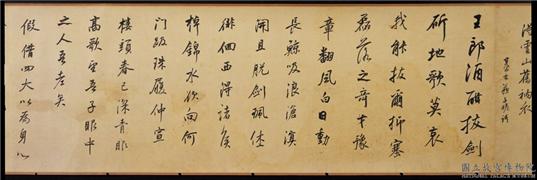 王郎酒酣拔劍
斫地歌莫哀
我能拔爾抑塞
磊落之奇才豫
章翻風白日動
長鯨吸浪滄溟
開且脫劍珮休
徘徊西得諸侯
棹錦水欲向何
門趿珠履仲宣
樓頭春已深青眼
高歌望吾子眼中
之人吾老矣
假借四大以為身心
國立故宮博物院
NATIONAL PALACE MUSEUM